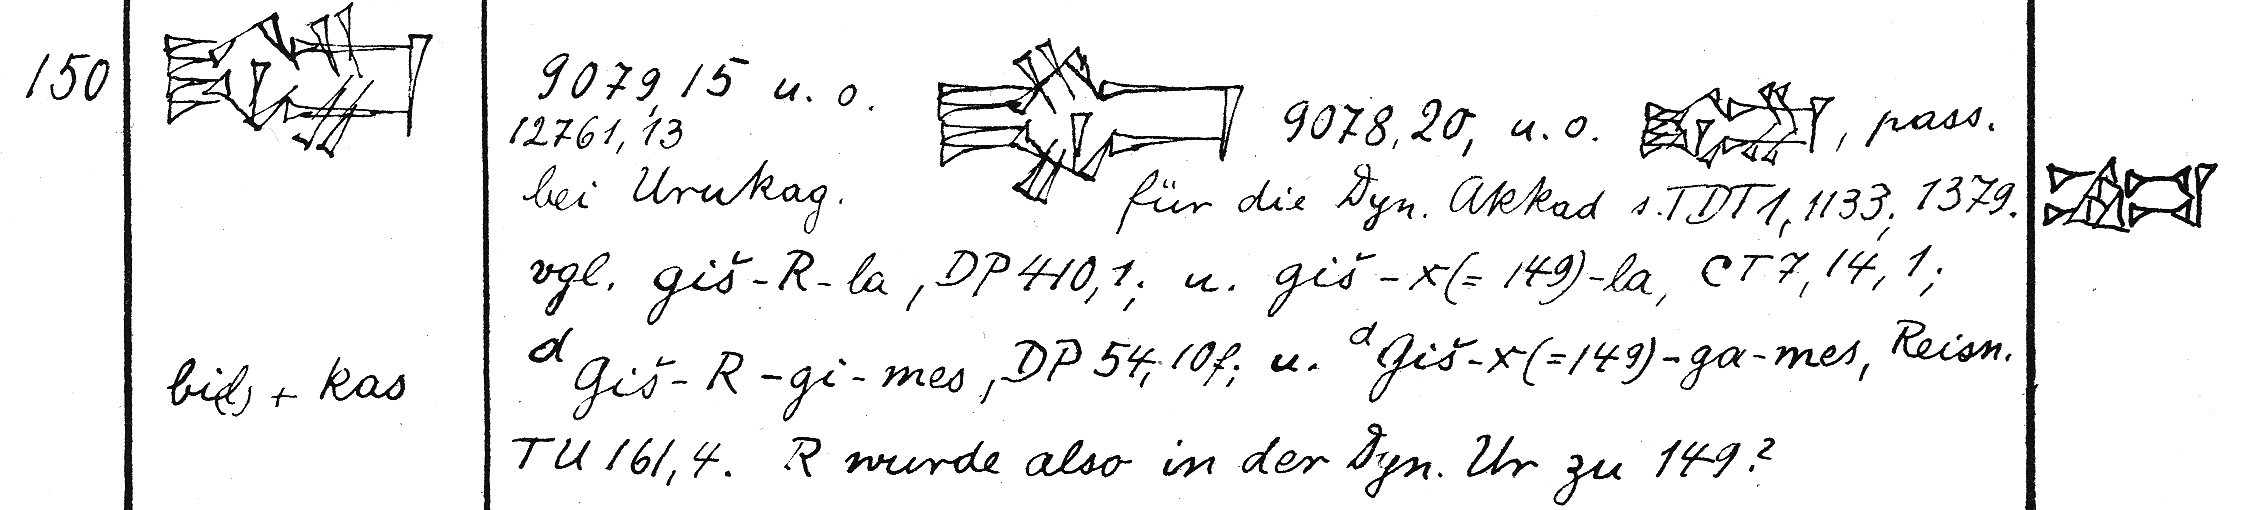 150 9079,15 u. o. 9078,20, u. o. , pass.
12761,13
bei Urukag. für die Dyn. Akkad s. TDT1, 1133, 1379.
vgl. giš-R-la, DP 410,1; u. giš-x(=149)-la, CT 7, 14, 1;
ᵈGiš-R-gi-mes, DP 54, 10f; u. ᵈGiš-x(=149)-ga-mes, Reisn.
bi(l) + kas
TU 161,4. R wurde also in der Dyn. Ur zu 149?